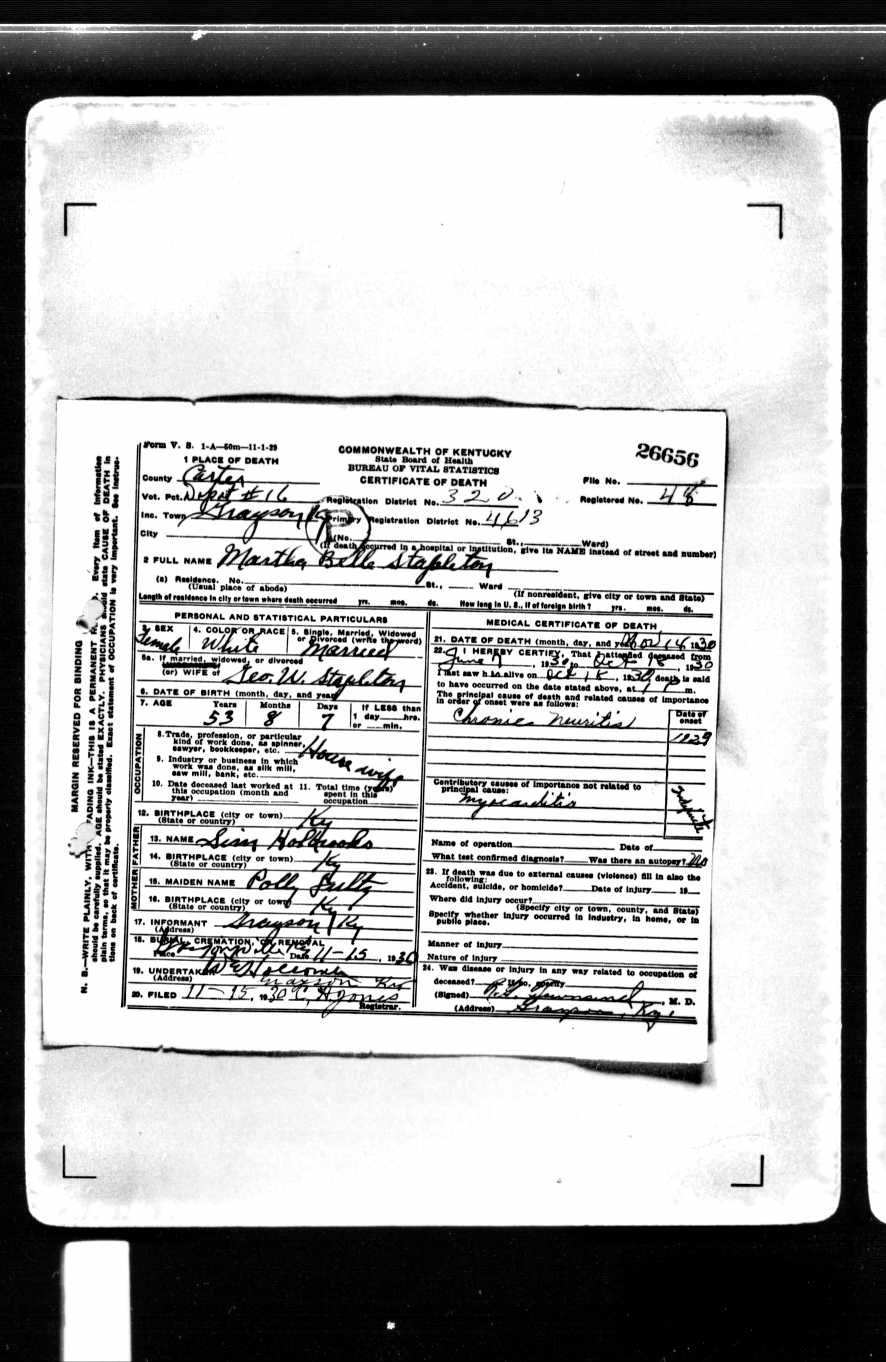 Form V. S. 1-A—50m—11-1-29
COMMONWEALTH OF KENTUCKY
State Board of Health
BUREAU OF VITAL STATISTICS
CERTIFICATE OF DEATH
26656
1 PLACE OF DEATH
County Carter
File No.
Vot. Pct. Depot #16
Registration District No. 320
Registered No. 48
Inc. Town Grayson Ky
Primary Registration District No. 4613
City (No. St., Ward)
(If death occurred in a hospital or institution, give its NAME instead of street and number)
2 FULL NAME Martha Belle Stapleton
(a) Residence. No. St., Ward
(Usual place of abode) (If nonresident, give city or town and State)
Length of residence in city or town where death occurred yrs. mos. ds. How long in U. S., if of foreign birth? yrs. mos. ds.
PERSONAL AND STATISTICAL PARTICULARS
3. SEX 4. COLOR OR RACE 5. Single, Married, Widowed
or Divorced (write the word)
Female White Married
5a. If married, widowed, or divorced
(or) WIFE of Geo. W. Stapleton
6. DATE OF BIRTH (month, day, and year)
7. AGE Years Months Days If LESS than
1 day hrs.
or min.
53 8 7
OCCUPATION
8. Trade, profession, or particular
kind of work done, as spinner,
sawyer, bookkeeper, etc. House wife
9. Industry or business in which
work was done, as silk mill,
saw mill, bank, etc.
10. Date deceased last worked at
this occupation (month and
year)
11. Total time (years)
spent in this
occupation
12. BIRTHPLACE (city or town)
(State or country) Ky
FATHER
13. NAME Sim Holbrooks
14. BIRTHPLACE (city or town)
(State or country) Ky
MOTHER
15. MAIDEN NAME Polly
16. BIRTHPLACE (city or town)
(State or country) Ky
17. INFORMANT Grayson Ky
(Address)
18. BURIAL, CREMATION, OR REMOVAL
Place Date 11-15, 1930
19. UNDERTAKER
(Address) Ky
20. FILED 11-15, 1930 Jones
Registrar.
MEDICAL CERTIFICATE OF DEATH
21. DATE OF DEATH (month, day, and year) Nov 14 1930
22. I HEREBY CERTIFY, That I attended deceased from
June 7, 1930 to Oct 18, 1930
I last saw h alive on Oct 18, 1930, death is said
to have occurred on the date stated above, at m.
The principal cause of death and related causes of importance
in order of onset were as follows:
Date of
onset
Chronic Neuritis
1929
Contributory causes of importance not related to
principal cause:
Myocarditis Indefinite
Name of operation Date of
What test confirmed diagnosis? Was there an autopsy? No
23. If death was due to external causes (violence) fill in also the
following:
Accident, suicide, or homicide? Date of injury 19
Where did injury occur?
(Specify city or town, county, and State)
Specify whether injury occurred in industry, in home, or in
public place.
Manner of injury
Nature of injury
24. Was disease or injury in any way related to occupation of
deceased? If so, specify
(Signed) Townsend, M. D.
(Address) Grayson, Ky.
MARGIN RESERVED FOR BINDING
N. B.—WRITE PLAINLY, WITH FADING INK—THIS IS A PERMANENT Every item of information
should be carefully supplied. AGE should be stated EXACTLY. PHYSICIANS should state CAUSE OF DEATH in
plain terms, so that it may be properly classified. Exact statement of OCCUPATION is very important. See instruc-
tions on back of certificate.